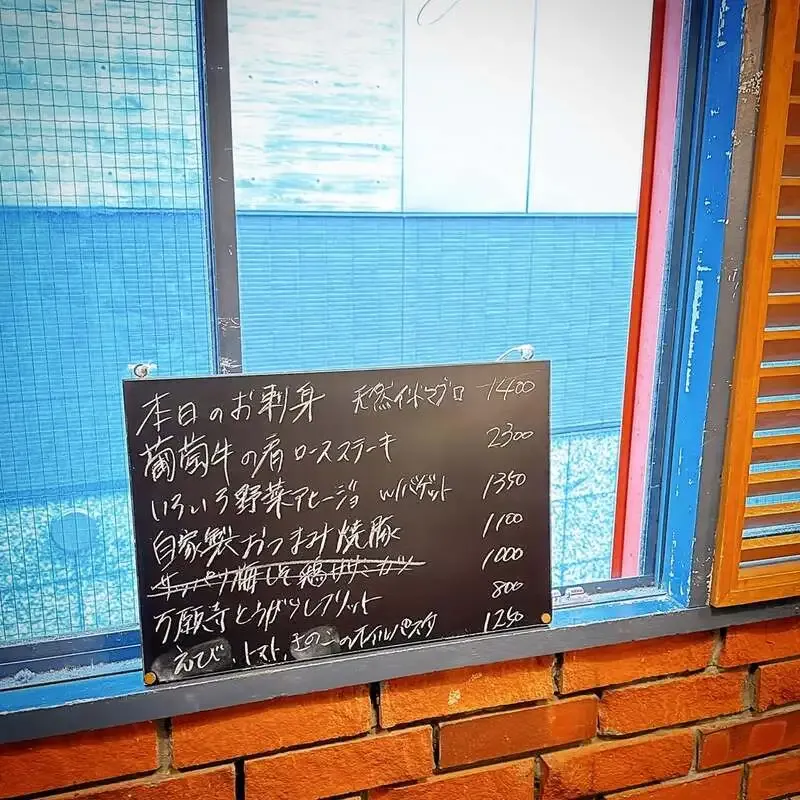 本日のお刺身 天然インドマグロ 1400
葡萄牛の肩ロースステーキ 2300
いろいろ野菜アヒージョ w/バゲット 1350
自家製おつまみ焼豚 1100
サッパリ梅しそ鶏ササミカツ 1000
万願寺とうがらしフリット 800
えび、トマト、きのこのオイルパスタ 1250